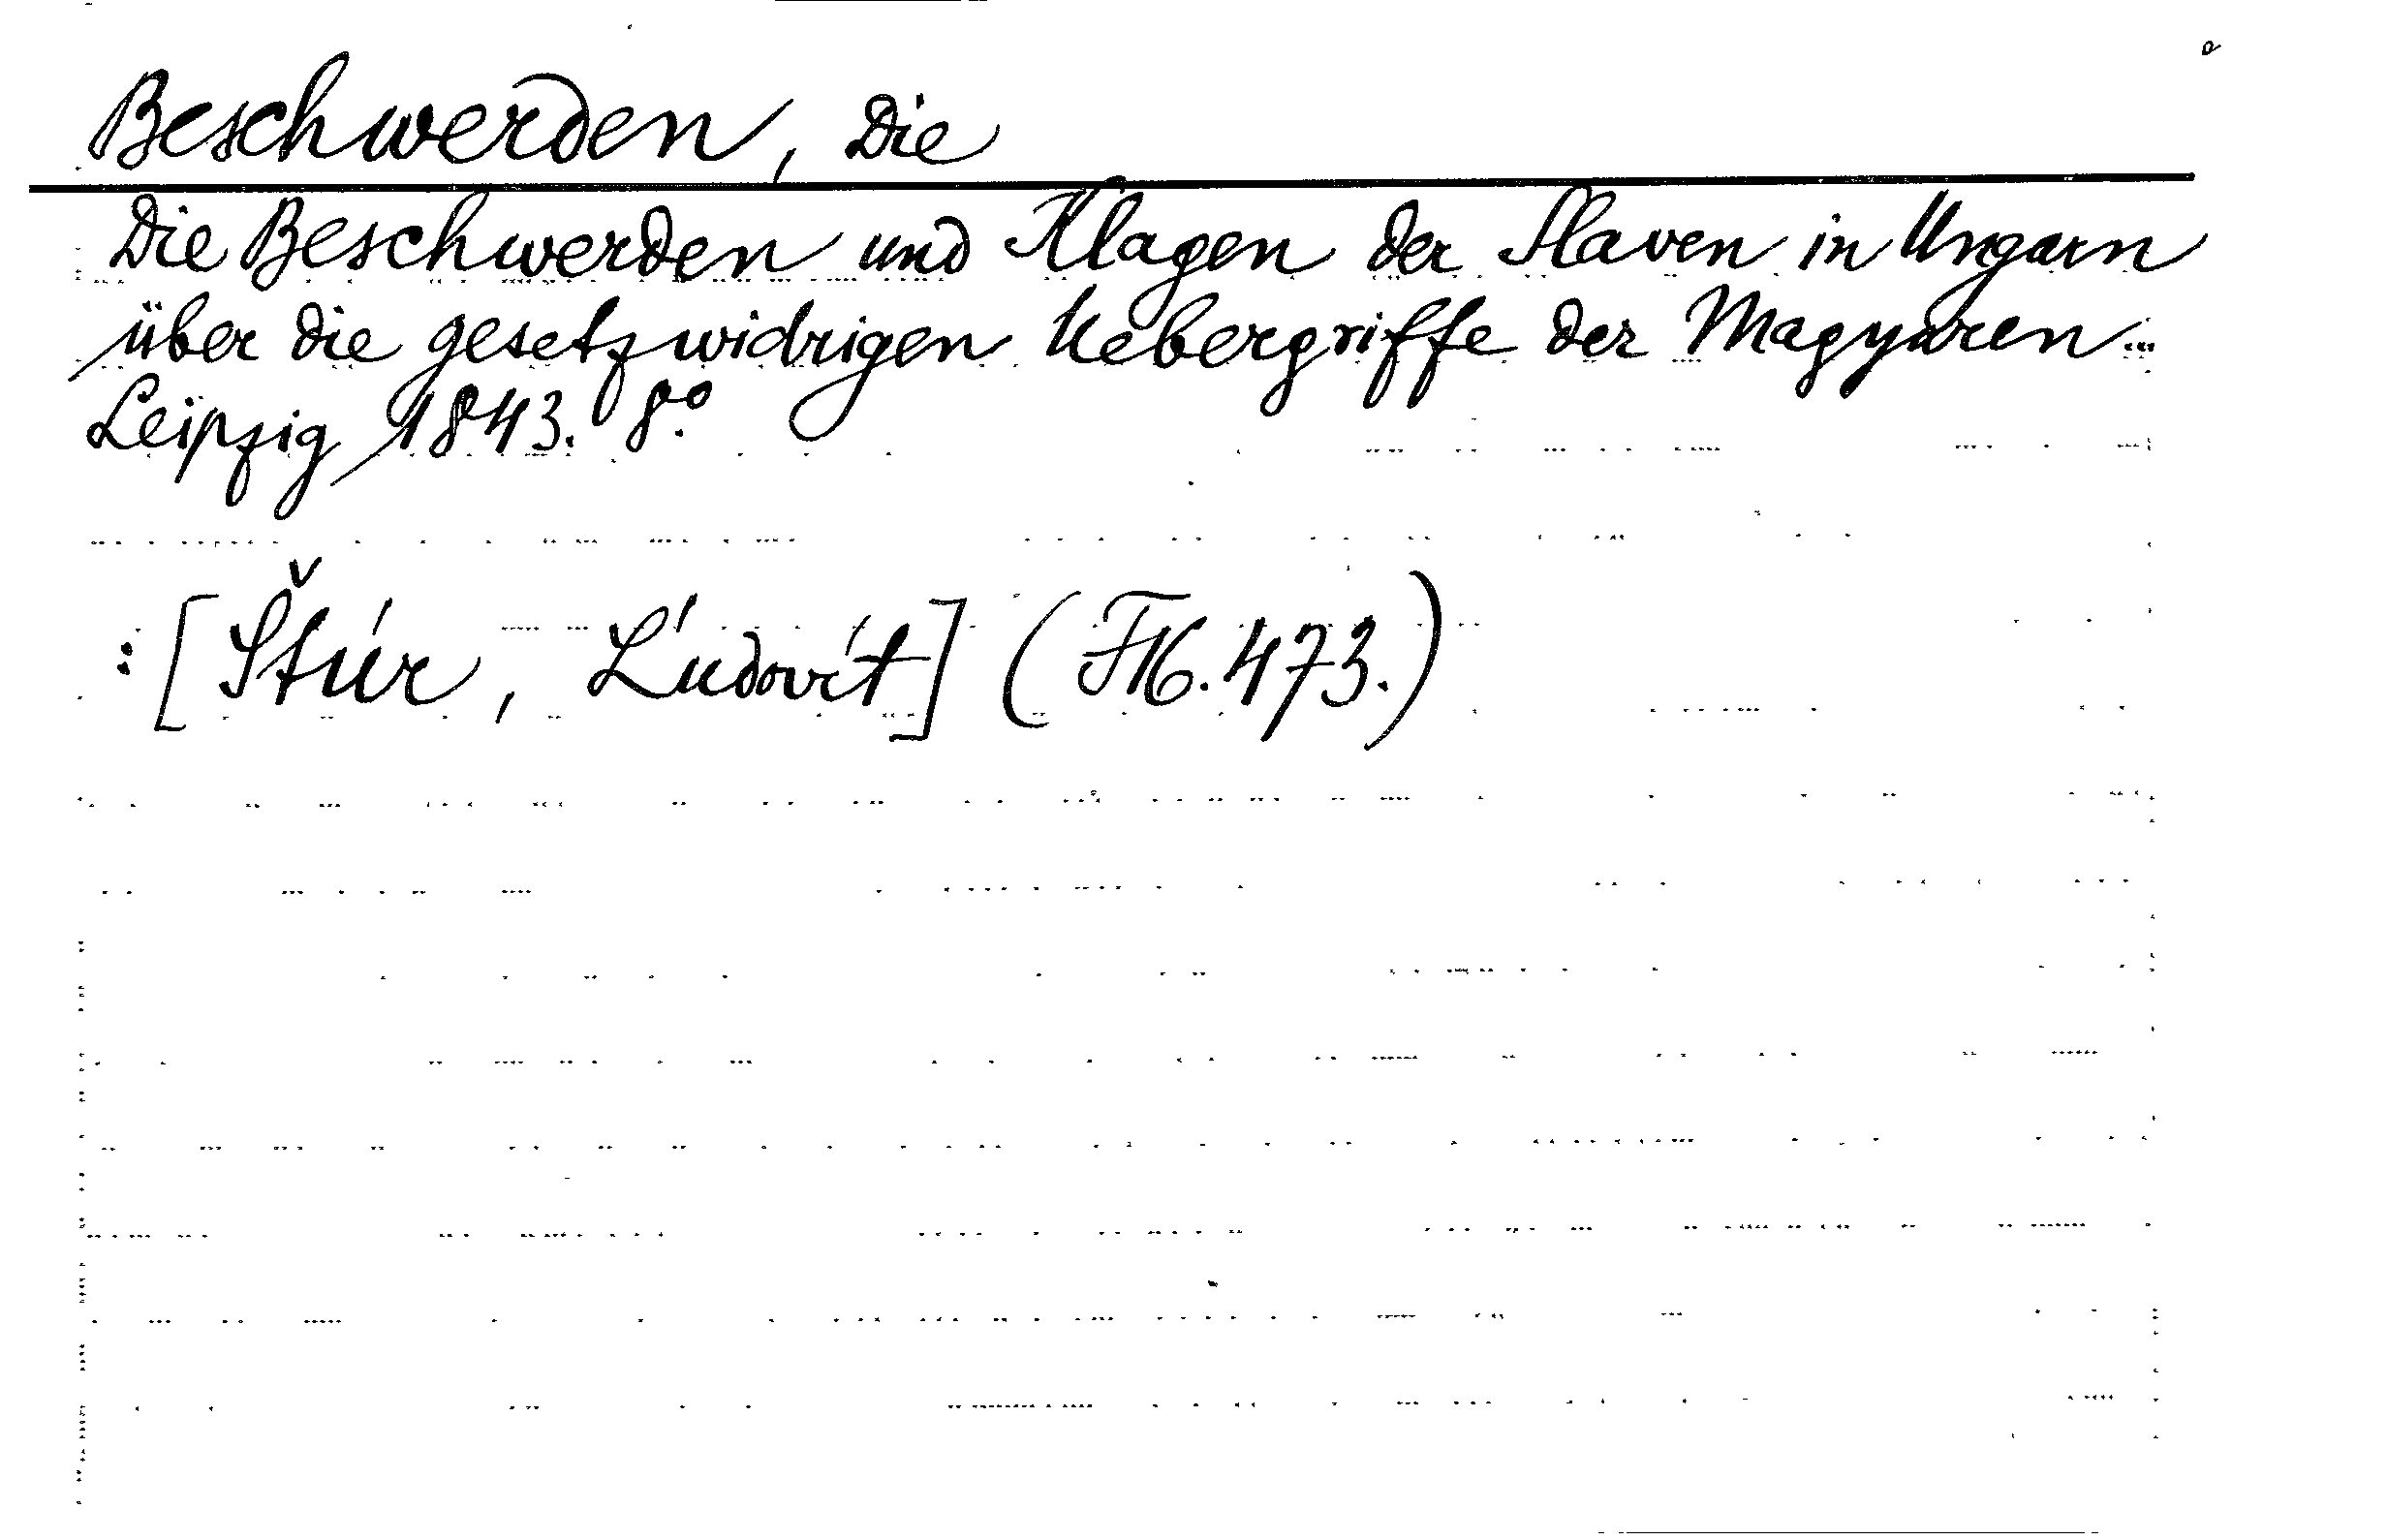 Beschwerden, Die
Die Beschwerden und Klagen der Slaven in Ungarn
über die gesetzwidrigen Uebergriffe der Magyaren...
Leipzig 1843. 8°.
: [Štúr, Ĺudovít] (F16. 473.)